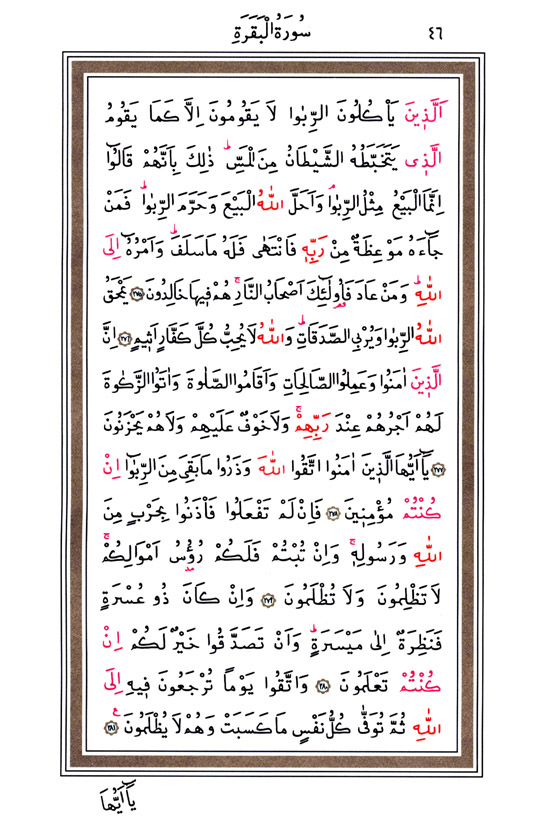 ٤٦
سُورَةُ الْبَقَرَةِ
اَلَّذ۪ينَ يَأْكُلُونَ الرِّبٰوا لَا يَقُومُونَ اِلَّا كَمَا يَقُومُ
الَّذ۪ي يَتَخَبَّطُهُ الشَّيْطَانُ مِنَ الْمَسِّۜ ذٰلِكَ بِاَنَّهُمْ قَالُٓوا
اِنَّمَا الْبَيْعُ مِثْلُ الرِّبٰواۢ وَاَحَلَّ اللّٰهُ الْبَيْعَ وَحَرَّمَ الرِّبٰواۜ فَمَنْ
جَٓاءَهُ مَوْعِظَةٌ مِنْ رَبِّه۪ فَانْتَهٰى فَلَهُ مَا سَلَفَۜ وَاَمْرُهُٓ اِلَى
اللّٰهِۜ وَمَنْ عَادَ فَاُو۬لٰٓئِكَ اَصْحَابُ النَّارِۚ هُمْ ف۪يهَا خَالِدُونَ ﴿٢٧٥﴾ يَمْحَقُ
اللّٰهُ الرِّبٰوا وَيُرْبِي الصَّدَقَاتِۜ وَاللّٰهُ لَا يُحِبُّ كُلَّ كَفَّارٍ اَث۪يمٍ ﴿٢٧٦﴾ اِنَّ
الَّذ۪ينَ اٰمَنُوا وَعَمِلُوا الصَّالِحَاتِ وَاَقَامُوا الصَّلٰوةَ وَاٰتَوُا الزَّكٰوةَ
لَهُمْ اَجْرُهُمْ عِنْدَ رَبِّهِمْۚ وَلَا خَوْفٌ عَلَيْهِمْ وَلَا هُمْ يَحْزَنُونَ
﴿٢٧٧﴾ يَٓا اَيُّهَا الَّذ۪ينَ اٰمَنُوا اتَّقُوا اللّٰهَ وَذَرُوا مَا بَقِيَ مِنَ الرِّبٰٓوا اِنْ
كُنْتُمْ مُؤْمِن۪ينَ ﴿٢٧٨﴾ فَاِنْ لَمْ تَفْعَلُوا فَأْذَنُوا بِحَرْبٍ مِنَ
اللّٰهِ وَرَسُولِه۪ۚ وَاِنْ تُبْتُمْ فَلَكُمْ رُؤُ۫سُ اَمْوَالِكُمْۚ
لَا تَظْلِمُونَ وَلَا تُظْلَمُونَ ﴿٢٧٩﴾ وَاِنْ كَانَ ذُو عُسْرَةٍ
فَنَظِرَةٌ اِلٰى مَيْسَرَةٍۜ وَاَنْ تَصَدَّقُوا خَيْرٌ لَكُمْ اِنْ
كُنْتُمْ تَعْلَمُونَ ﴿٢٨٠﴾ وَاتَّقُوا يَوْماً تُرْجَعُونَ ف۪يهِ اِلَى
اللّٰهِ ثُمَّ تُوَفّٰى كُلُّ نَفْسٍ مَا كَسَبَتْ وَهُمْ لَا يُظْلَمُونَ۟ ﴿٢٨١﴾
يَٓا اَيُّهَا